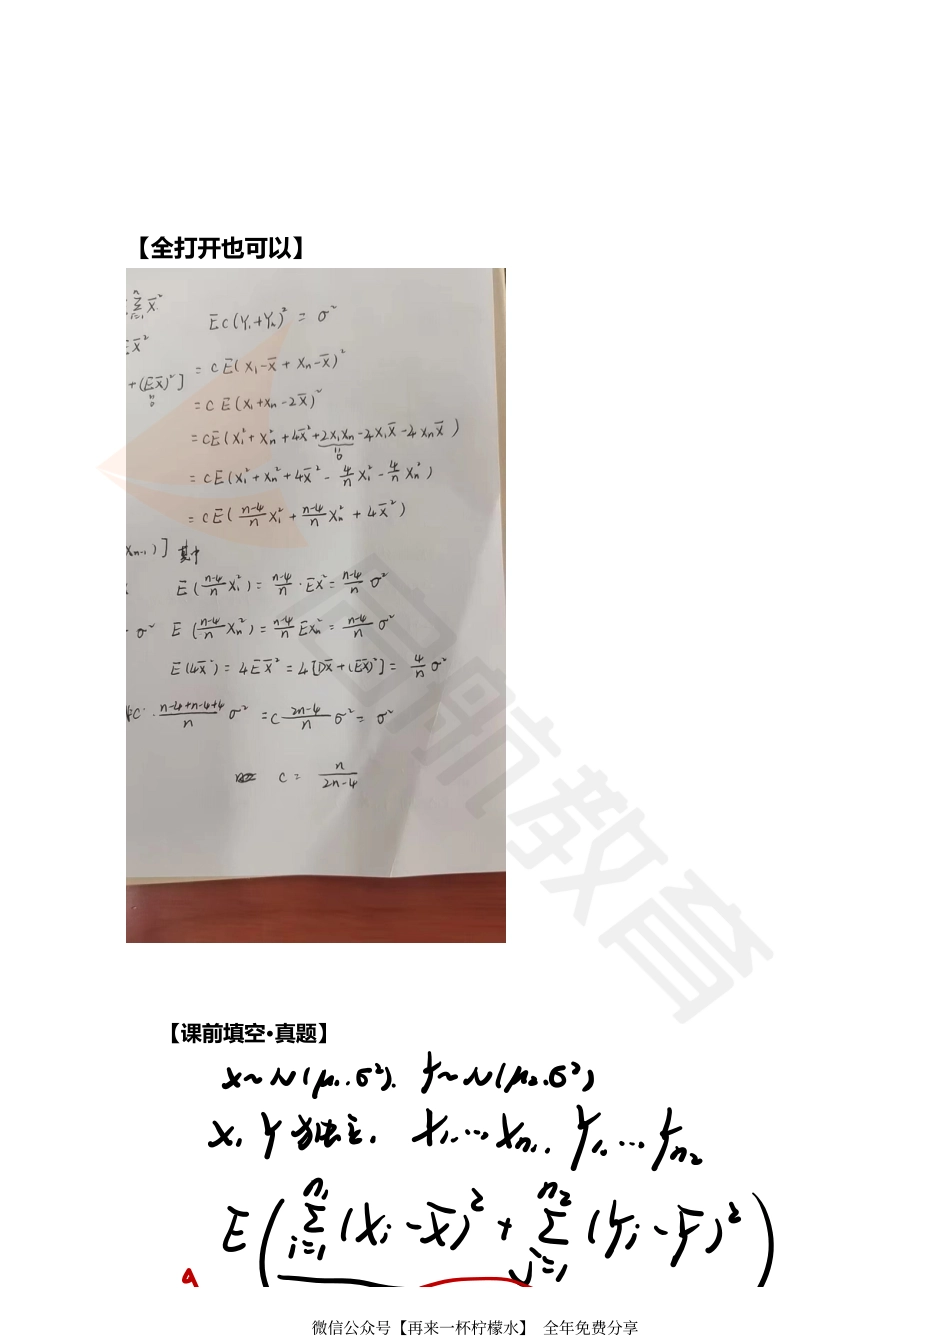 【全打开也可以】
Σ_{i=1}^{n} X̄²
EX̄²
+(EX̄)²]
0
Ec(Y₁+Yₙ)² = σ²
= cE(X₁-X̄+Xₙ-X̄)²
= cE(X₁+Xₙ-2X̄)²
= cE(X₁²+Xₙ²+4X̄²+2X₁Xₙ-4X₁X̄-4XₙX̄)
0
= cE(X₁²+Xₙ²+4X̄²-4/n X₁²-4/n Xₙ²)
= cE((n-4)/n X₁²+(n-4)/n Xₙ²+4X̄²)
Xₙ₋₁)] 其中
E((n-4)/n X₁²) = (n-4)/n · EX₁² = (n-4)/n σ²
σ² E((n-4)/n Xₙ²) = (n-4)/n EXₙ² = (n-4)/n σ²
E(4X̄²) = 4EX̄² = 4[DX̄+(EX̄)²] = 4/n σ²
C · (n-4+n-4+4)/n σ² = c (2n-4)/n σ² = σ²
c = n/(2n-4)
高航教育
【课前填空·真题】
X~N(μ₁,σ²). Y~N(μ₂,σ²)
X, Y 独立, X₁,…Xₙ₁, Y₁,…Yₙ₂
E(Σ_{i=1}^{n₁}(Xᵢ-X̄)²+Σ_{j=1}^{n₂}(Yⱼ-Ȳ)²)
微信公众号【再来一杯柠檬水】 全年免费分享